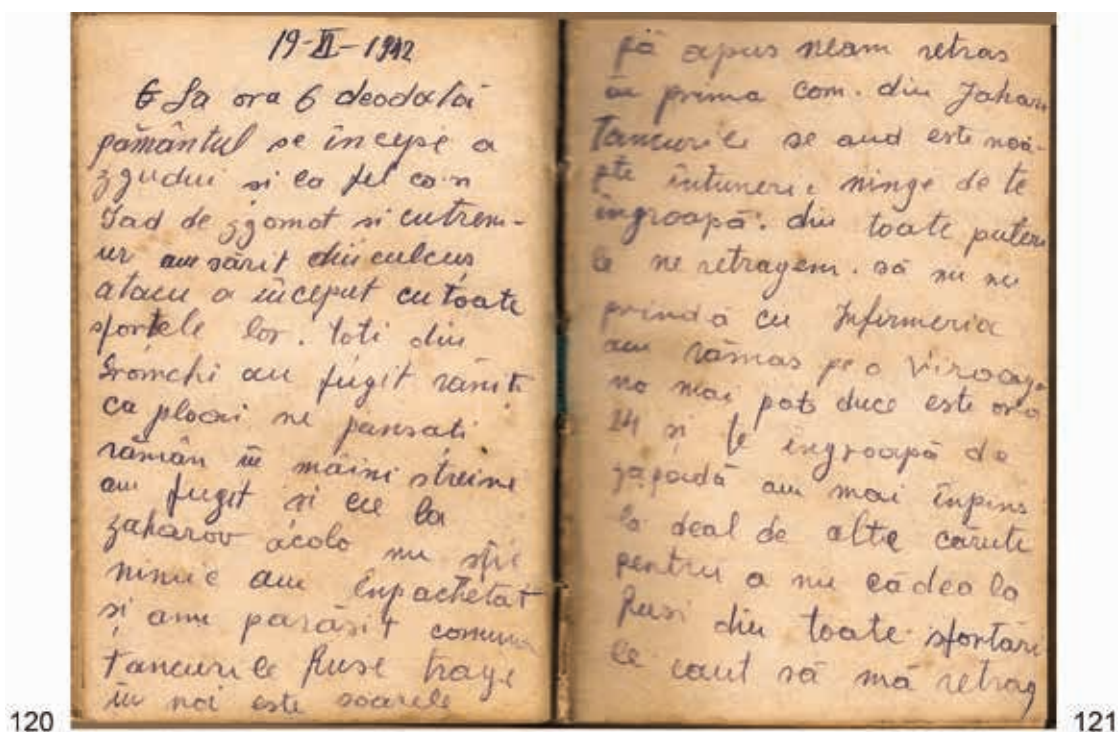 19-XI-1942
La ora 6 deodată
pământul se începe a
zgudui si ca fel ca-n
Iad de zgomot si cutrem-
ur am sărit din culcus
atacu a început cu toate
sfortele lor. toti din
Gromchi au fugit răniti
ca ploaii ne pansati
rămân în mâini streine
am fugit si eu la
zaharov acolo nu stie
nimic am înpachetat
si am parăsit comuna
tancurile Ruse trage
în noi este soarele
pă apus neam retras
în prima com. din Jahan
Tancurile se aud este noa-
pte întuneric ninge de te
îngroapă. din toate puteri
le ne retragem. să nu ne
prindă cu Infirmeria
am rămas pe o
no mai pot duce este ora
24 si te îngroapă de
zăpadă am mai înpins
la deal de alte cărute
pentru a nu cădea la
Rusi din toate sfortări
le caut să mă retrag
120
121